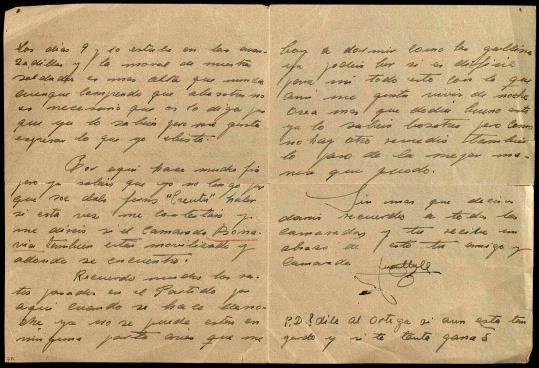 Los dias 9 y 10 estube en las avan-
zadillas y la moral de nuestros
soldados es mas alta que nunca
aunque comprendo que a bosotros no
es necesario que os lo diga por
que ya lo sabeis pero me gusta
expresar lo que yo
Por aqui hace mucho frio
pero ya sabeis que yo no tengo por
que ser dels feins "Creuta" haber
si esta vez me contestais y
me direis si el Camarada Bona-
via tambien esta movilizado y
adonde se encuentra.
Recuerdo mucho los ra-
tos pasados en el Partido por
aqui cuando se hace de no-
che ya no se puede estar en
ninguna parte asies que me
boy a dormir como las gallinas
ya podeis ber si es dificil
para mi todo esto con lo que
ami me gusta vivir de noche
Creo mas que dado bueno este
ya lo sabeis bosotros pero como
no hay otro remedio tambien
lo paso de la mejor ma-
nera que puedo.
Sin mas que deciros
daris recuerdos a todos los
camaradas y tu recibe un
abrazo de este tu amigo y
Camarada
P.D. dile al Ortega si aun esta tan
gordo y si te tanta gana